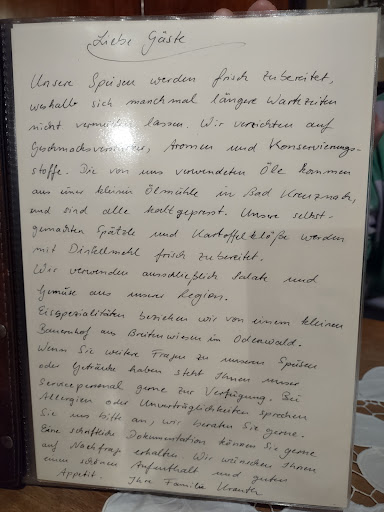 Liebe Gäste
Unsere Speisen werden frisch zubereitet,
weshalb sich manchmal längere Wartezeiten
nicht vermeiden lassen. Wir verzichten auf
Geschmacksverstärker, Aromen und Konservierungs-
stoffe. Die von uns verwendeten Öle kommen
aus einer kleinen Ölmühle in Bad Kreuznach,
und sind alle kaltgepresst. Unsere selbst-
gemachten Spätzle und Kartoffelklöße werden
mit Dinkelmehl frisch zubereitet.
Wir verwenden ausschließlich Salate und
Gemüse aus unserer Region.
Eisspezialitäten beziehen wir von einem kleinen
Bauernhof aus Breitenwiesen im Odenwald.
Wenn Sie weitere Fragen zu unseren Speisen
oder Getränke haben steht Ihnen unser
Servicepersonal gerne zur Verfügung. Bei
Allergien oder Unverträglichkeiten sprechen
Sie uns bitte an, wir beraten Sie gerne.
Eine schriftliche Dokumentation können Sie gerne
auf Nachfrage erhalten. Wir wünschen Ihnen
einen schönen Aufenthalt und guten
Appetit. Ihre Familie